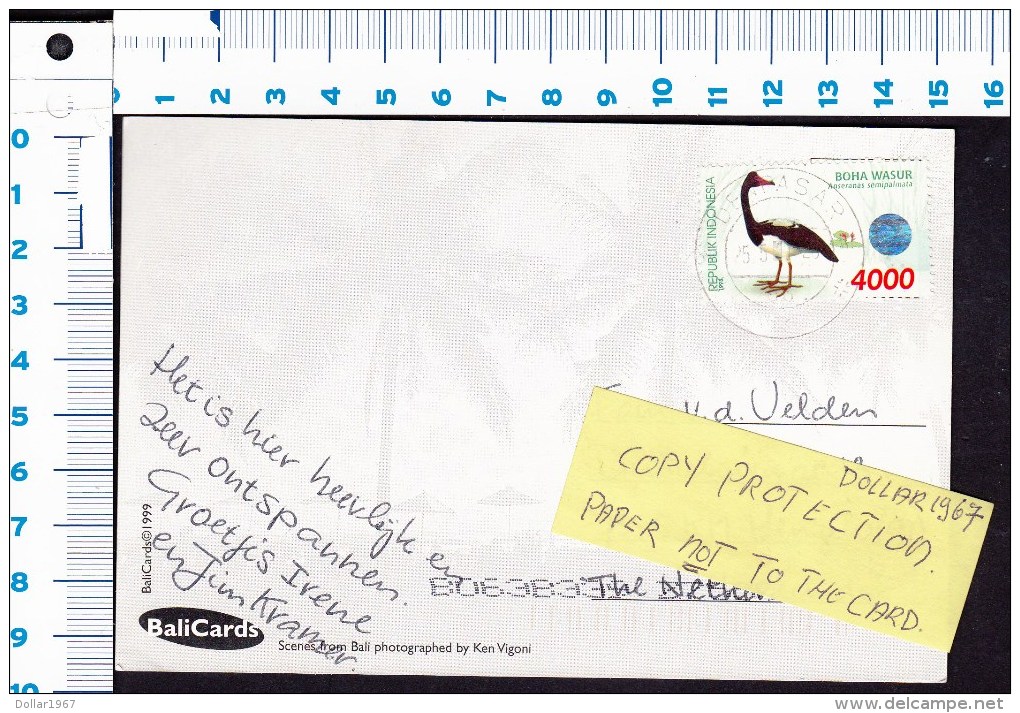 0 1 2 3 4 5 6 7 8 9 10 11 12 13 14 15 16
0
1
2
3
4
5
6
7
8
9
10
REPUBLIK INDONESIA
1998
BOHA WASUR
Anseranas semipalmata
4000
DENPASAR
Het is hier heerlijk en
zeer ontspannen.
Groetjes Irene
en Jim Kramer.
v.d. Velden
The Nether
COPY PROTECTION
DOLLAR 1967
PAPER NOT TO THE CARD.
BaliCards©1999
BaliCards
Scenes from Bali photographed by Ken Vigoni
Dollar1967
www.delcampe.net